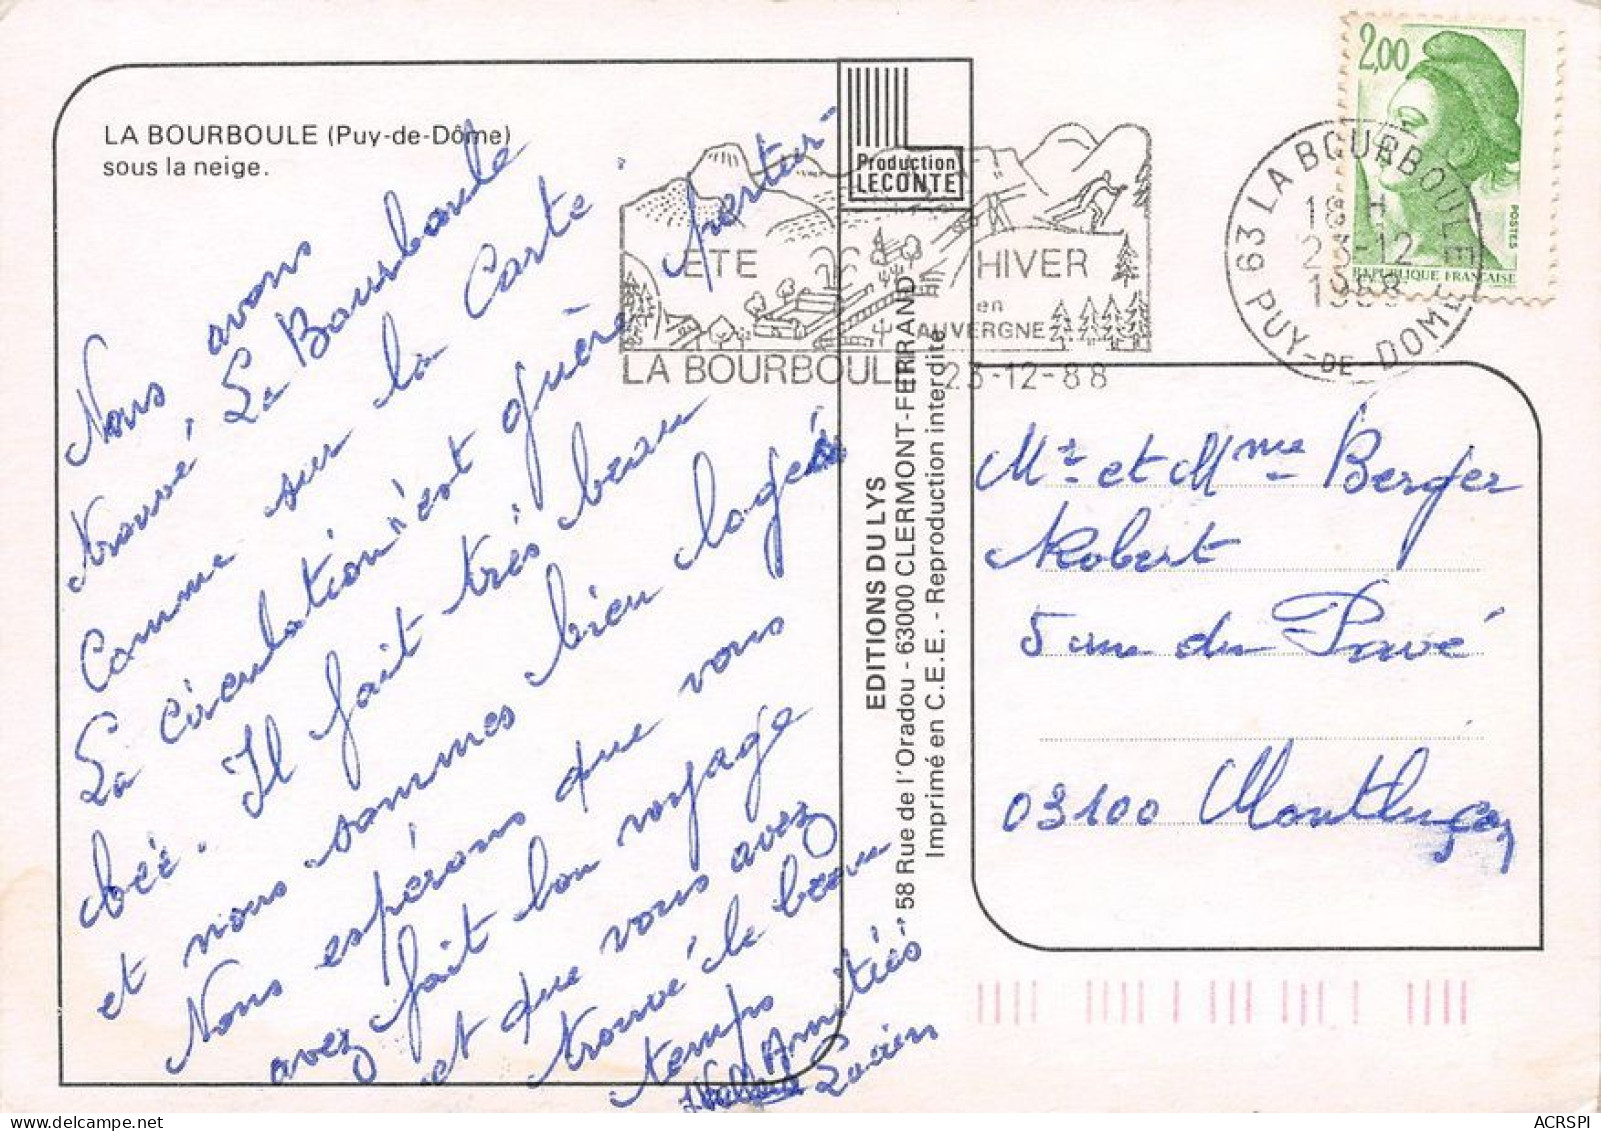 LA BOURBOULE (Puy-de-Dôme)
sous la neige.
Nous avons
trouvé, La Bourboule
comme sur la Carte.
La circulation n'est guère pertur-
bée. Il fait très beau
et nous sommes bien logés
Nous espérons que vous
avez fait bon voyage
et que vous avez
trouvé le beau
temps
Amitiés
Lucien
Production
LECONTE
ETE
HIVER
en
AUVERGNE
LA BOURBOULE 23-12-88
63 LA BOURBOULE
18 H
23-12
1988
PUY-DE DOME
2,00
POSTES
REPUBLIQUE FRANÇAISE
EDITIONS DU LYS
58 Rue de l'Oradou - 63000 CLERMONT-FERRAND
Imprimé en C.E.E. - Reproduction interdite
Mr et Mme Berger
Robert
5 rue du Pavé
03100 Montluçon
ACRSPI